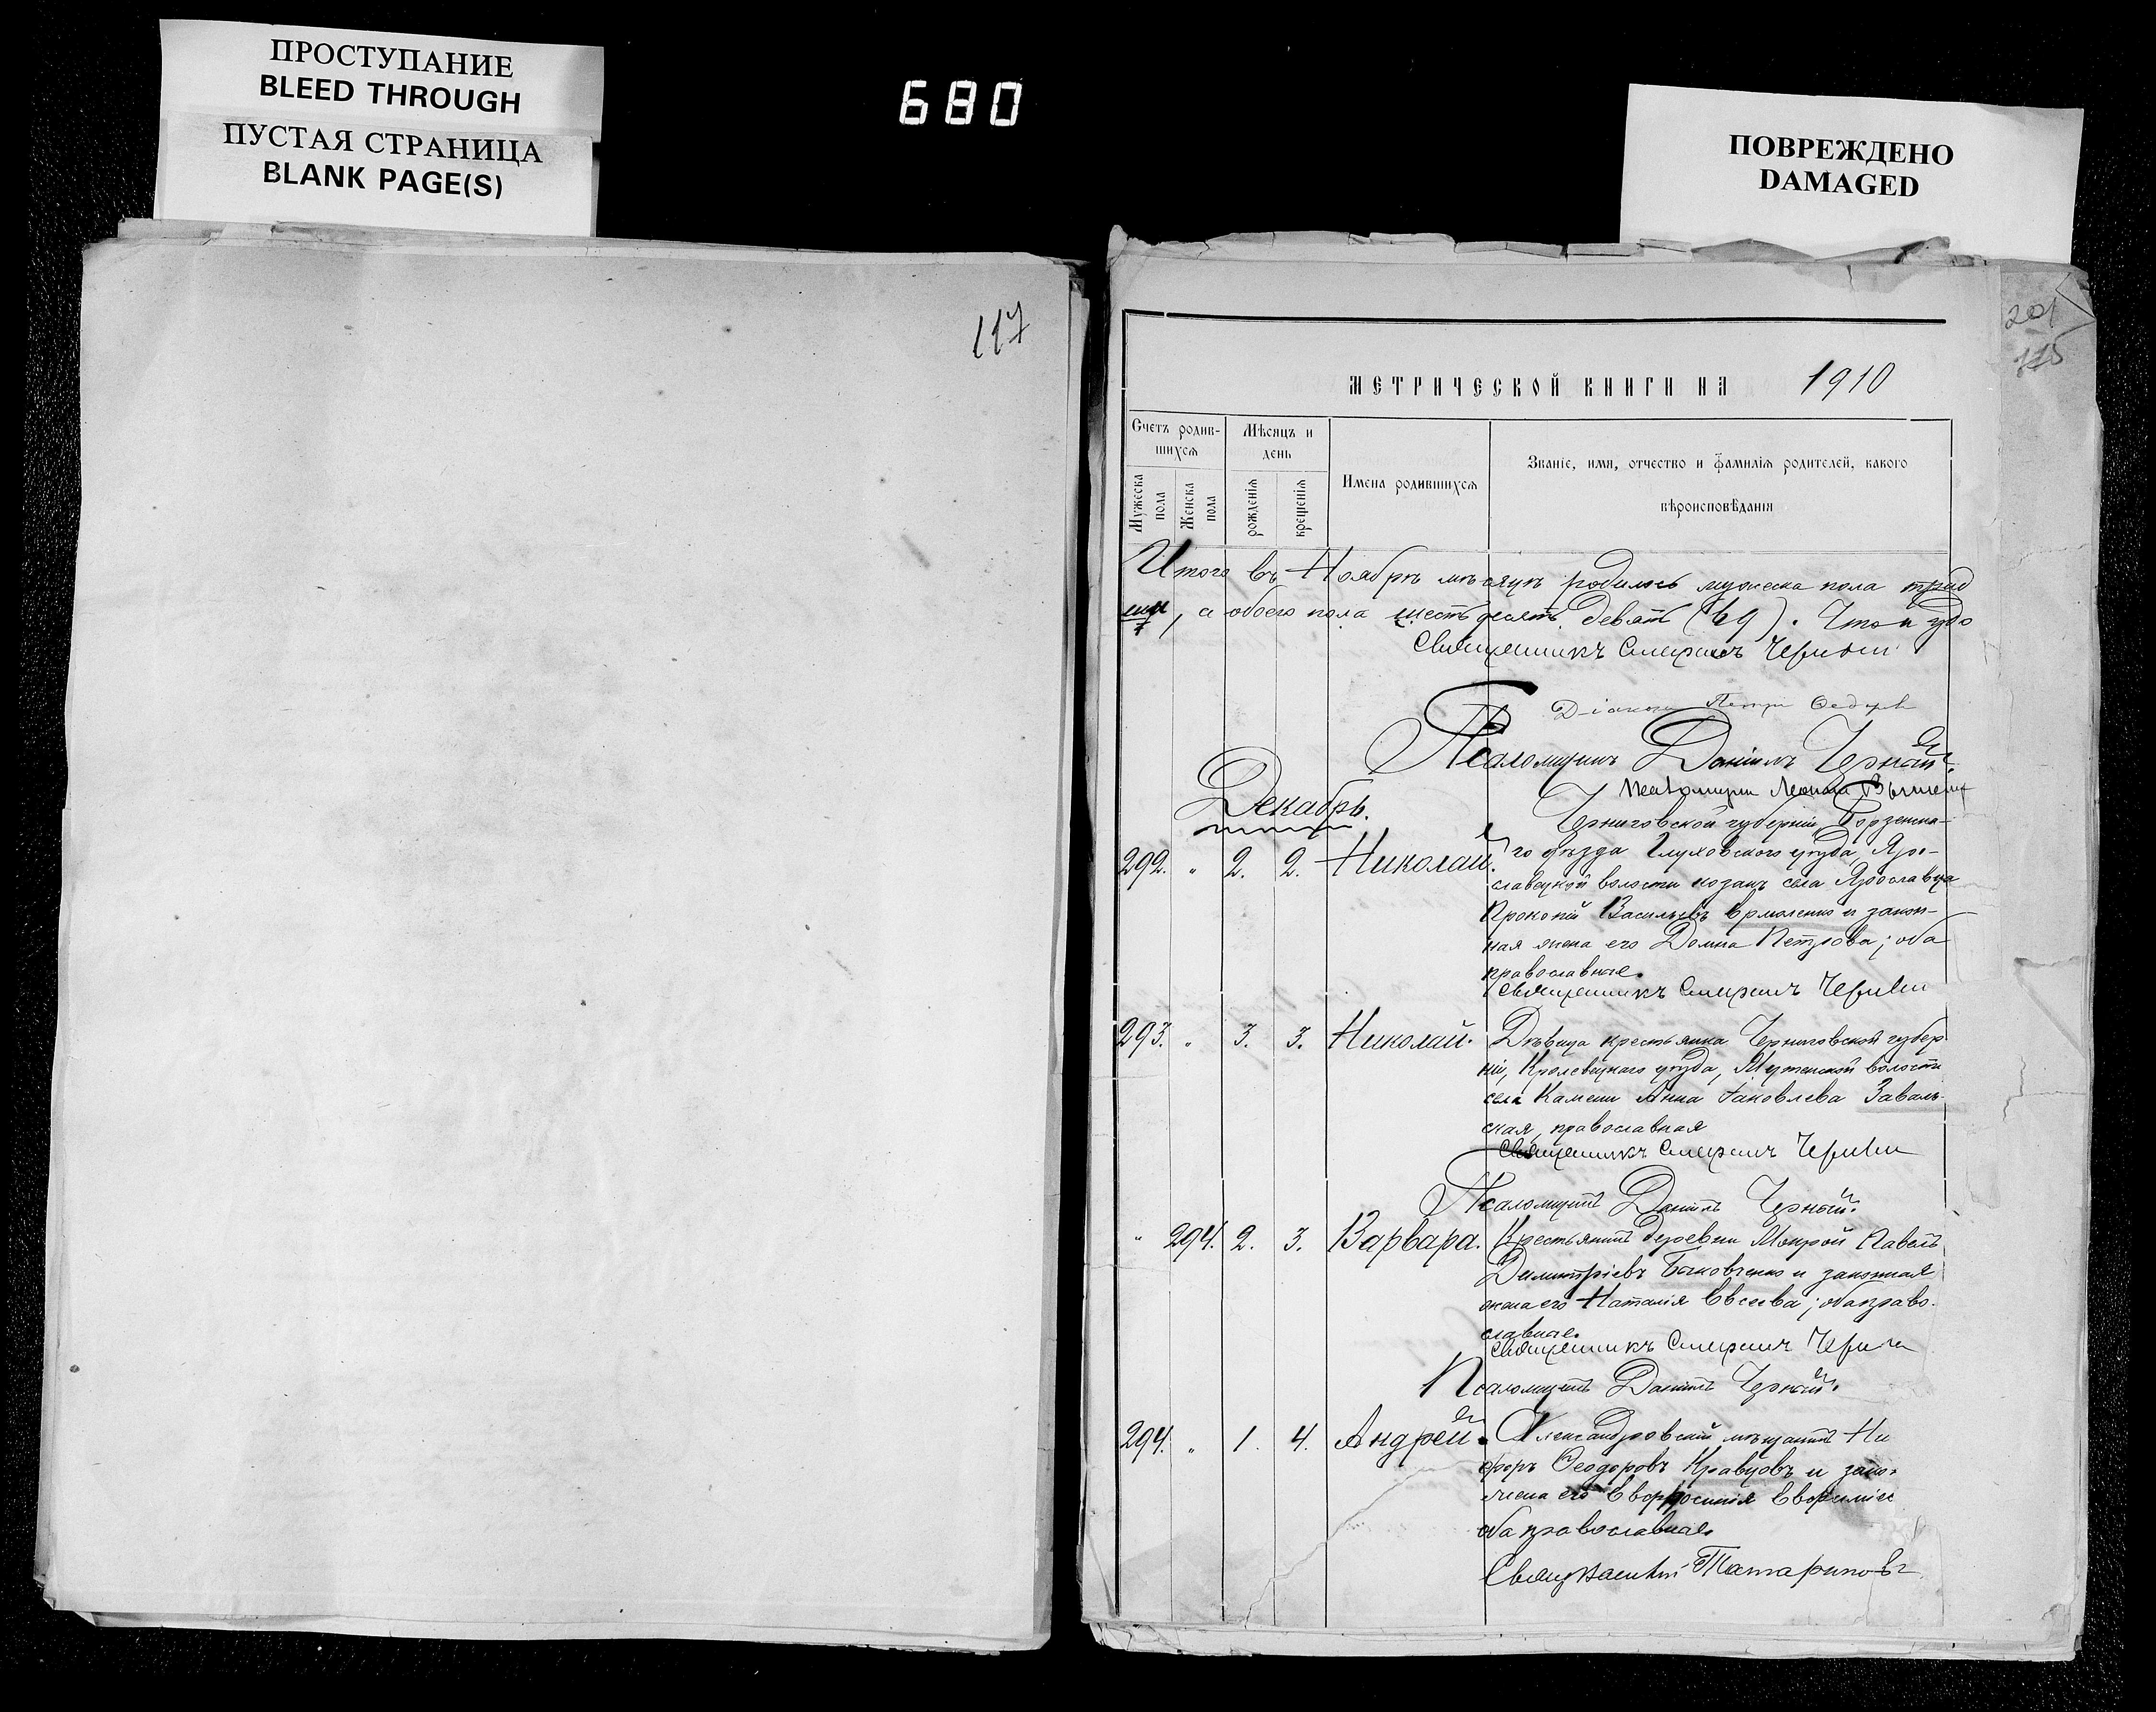 ПРОСТУПАНИЕ
BLEED THROUGH
ПУСТАЯ СТРАНИЦА
BLANK PAGE(S)
680
ПОВРЕЖДЕНО
DAMAGED
117
201
МЕТРИЧЕСКОЙ КНИГИ НА 1910
Счетъ родив-
шихся
Мужеска
пола
Женска
пола
Мѣсяцъ и
день
рожденія
крещенія
Имена родившихся
Званіе, имя, отчество и фамилія родителей, какого
вѣроисповѣданія
Итого въ Ноябрѣ мѣсяцѣ родилось мужеска пола трид
а обоего пола шестьдесятъ девять (69). Что и удо
Священникъ Черный
Діаконъ Петръ Ѳедоровъ
Псаломщикъ Даніилъ Черный.
Декабрь.
Черниговской губерніи, Борзенска-
292. " 2. 2. Николай. го уѣзда Глуховского уѣзда, Яро-
славецкой волости козакъ села Ярославца
Прокопій Васильевъ Ермоленко и закон-
ная жена его Домна Петрова; оба
православные.
Священникъ Черный
293. " 3. 3. Николай. Дѣвица крестьянка Черниговской губер
ніи, Кролевецкаго уѣзда, Мутенской волости
села Камени Анна Іаковлева Заваль-
ская, православная
Священникъ Черный
Псаломщикъ Даніилъ Черный.
" 294. 2. 3. Варвара. Крестьянинъ деревни Мокрой Павелъ
Димитріевъ Быковченко и законная
жена его Наталія Евсеева; оба право-
славные.
Священникъ Черный
Псаломщикъ Даніилъ Черный.
294. " 1. 4. Андрей. Александровскій мѣщанинъ Ни
форъ Ѳеодоровъ Кравцовъ и зако-
жена его Евфросинія Евфиміе
оба православные.
Татариновъ